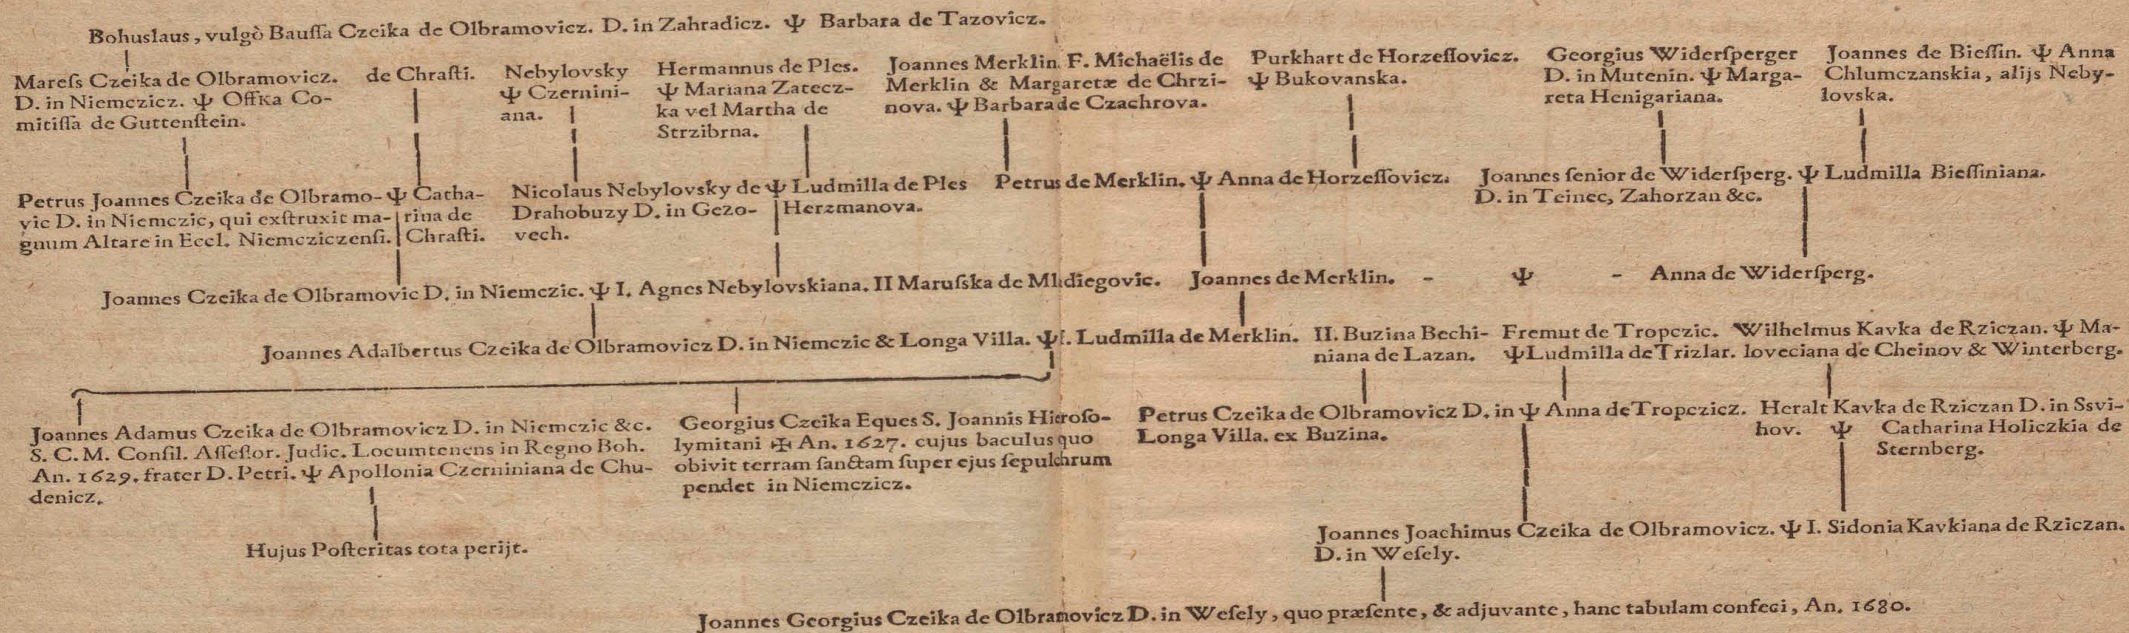 Bohuslaus, vulgò Bauſſa Czeika de Olbramovicz. D. in Zahradicz. Ψ Barbara de Tazovicz.
Mareſs Czeika de Olbramovicz.
D. in Niemczicz. Ψ Offka Co-
mitiſſa de Guttenſtein.
de Chraſti.
Nebylovsky
Ψ Czernini-
ana.
Hermannus de Ples.
Ψ Mariana Zatecz-
ka vel Martha de
Strzibrna.
Joannes Merklin F. Michaëlis de
Merklin & Margaretæ de Chrzi-
nova. Ψ Barbara de Czachrova.
Purkhart de Horzeſſovicz.
Ψ Bukovanska.
Georgius Widerſperger
D. in Mutenin. Ψ Marga-
reta Henigariana.
Joannes de Bieſſin. Ψ Anna
Chlumczanskia, alijs Neby-
lovska.
Petrus Joannes Czeika de Olbramo- Ψ Catha-
vic D. in Niemczic, qui exſtruxit ma- rina de
gnum Altare in Eccl. Niemcziczenſi. Chraſti.
Nicolaus Nebylovsky de Ψ Ludmilla de Ples
Drahobuzy D. in Gezo- Herzmanova.
vech.
Petrus de Merklin. Ψ Anna de Horzeſſovicz.
Joannes ſenior de Widerſperg. Ψ Ludmilla Bieſſiniana.
D. in Teinec, Zahorzan &c.
Joannes Czeika de Olbramovic D. in Niemczic. Ψ I. Agnes Nebylovskiana. II Maruſska de Mladiegovic.
Joannes de Merklin. - Ψ - Anna de Widerſperg.
Joannes Adalbertus Czeika de Olbramovicz D. in Niemczic & Longa Villa. Ψ I. Ludmilla de Merklin.
II. Buzina Bechi-
niana de Lazan.
Fremut de Tropczic.
Ψ Ludmilla de Trizlar.
Wilhelmus Kavka de Rziczan. Ψ Ma-
loveciana de Cheinov & Winterberg.
Joannes Adamus Czeika de Olbramovicz D. in Niemczic &c.
S. C. M. Conſil. Aſſeſſor. Judic. Locumtenens in Regno Boh.
An. 1629. frater D. Petri. Ψ Apollonia Czerniniana de Chu-
denicz.
Georgius Czeika Eques S. Joannis Hieroſo-
lymitani ✠ An. 1627. cujus baculus quo
obivit terram ſanctam ſuper ejus ſepulchrum
pendet in Niemczicz.
Petrus Czeika de Olbramovicz D. in Ψ Anna de Tropczicz.
Longa Villa. ex Buzina.
Heralt Kavka de Rziczan D. in Ssvi-
hov. Ψ Catharina Holiczkia de
Sternberg.
Hujus Poſteritas tota perijt.
Joannes Joachimus Czeika de Olbramovicz. Ψ I. Sidonia Kavkiana de Rziczan.
D. in Weſely.
Joannes Georgius Czeika de Olbramovicz D. in Weſely, quo præſente, & adjuvante, hanc tabulam confeci, An. 1680.